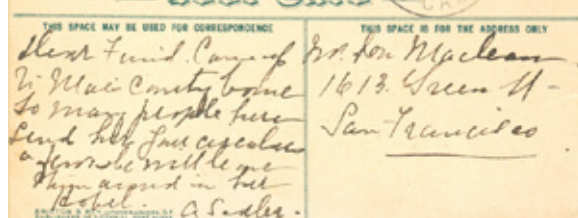 THIS SPACE MAY BE USED FOR CORRESPONDENCE
Dear Friend. Came up
to County home
So many people here
Send her circulars
a
them around in her
hotel.
A. Sadler.
THIS SPACE IS FOR THE ADDRESS ONLY
Mr. Don Maclean
1613. Green St -
San Francisco